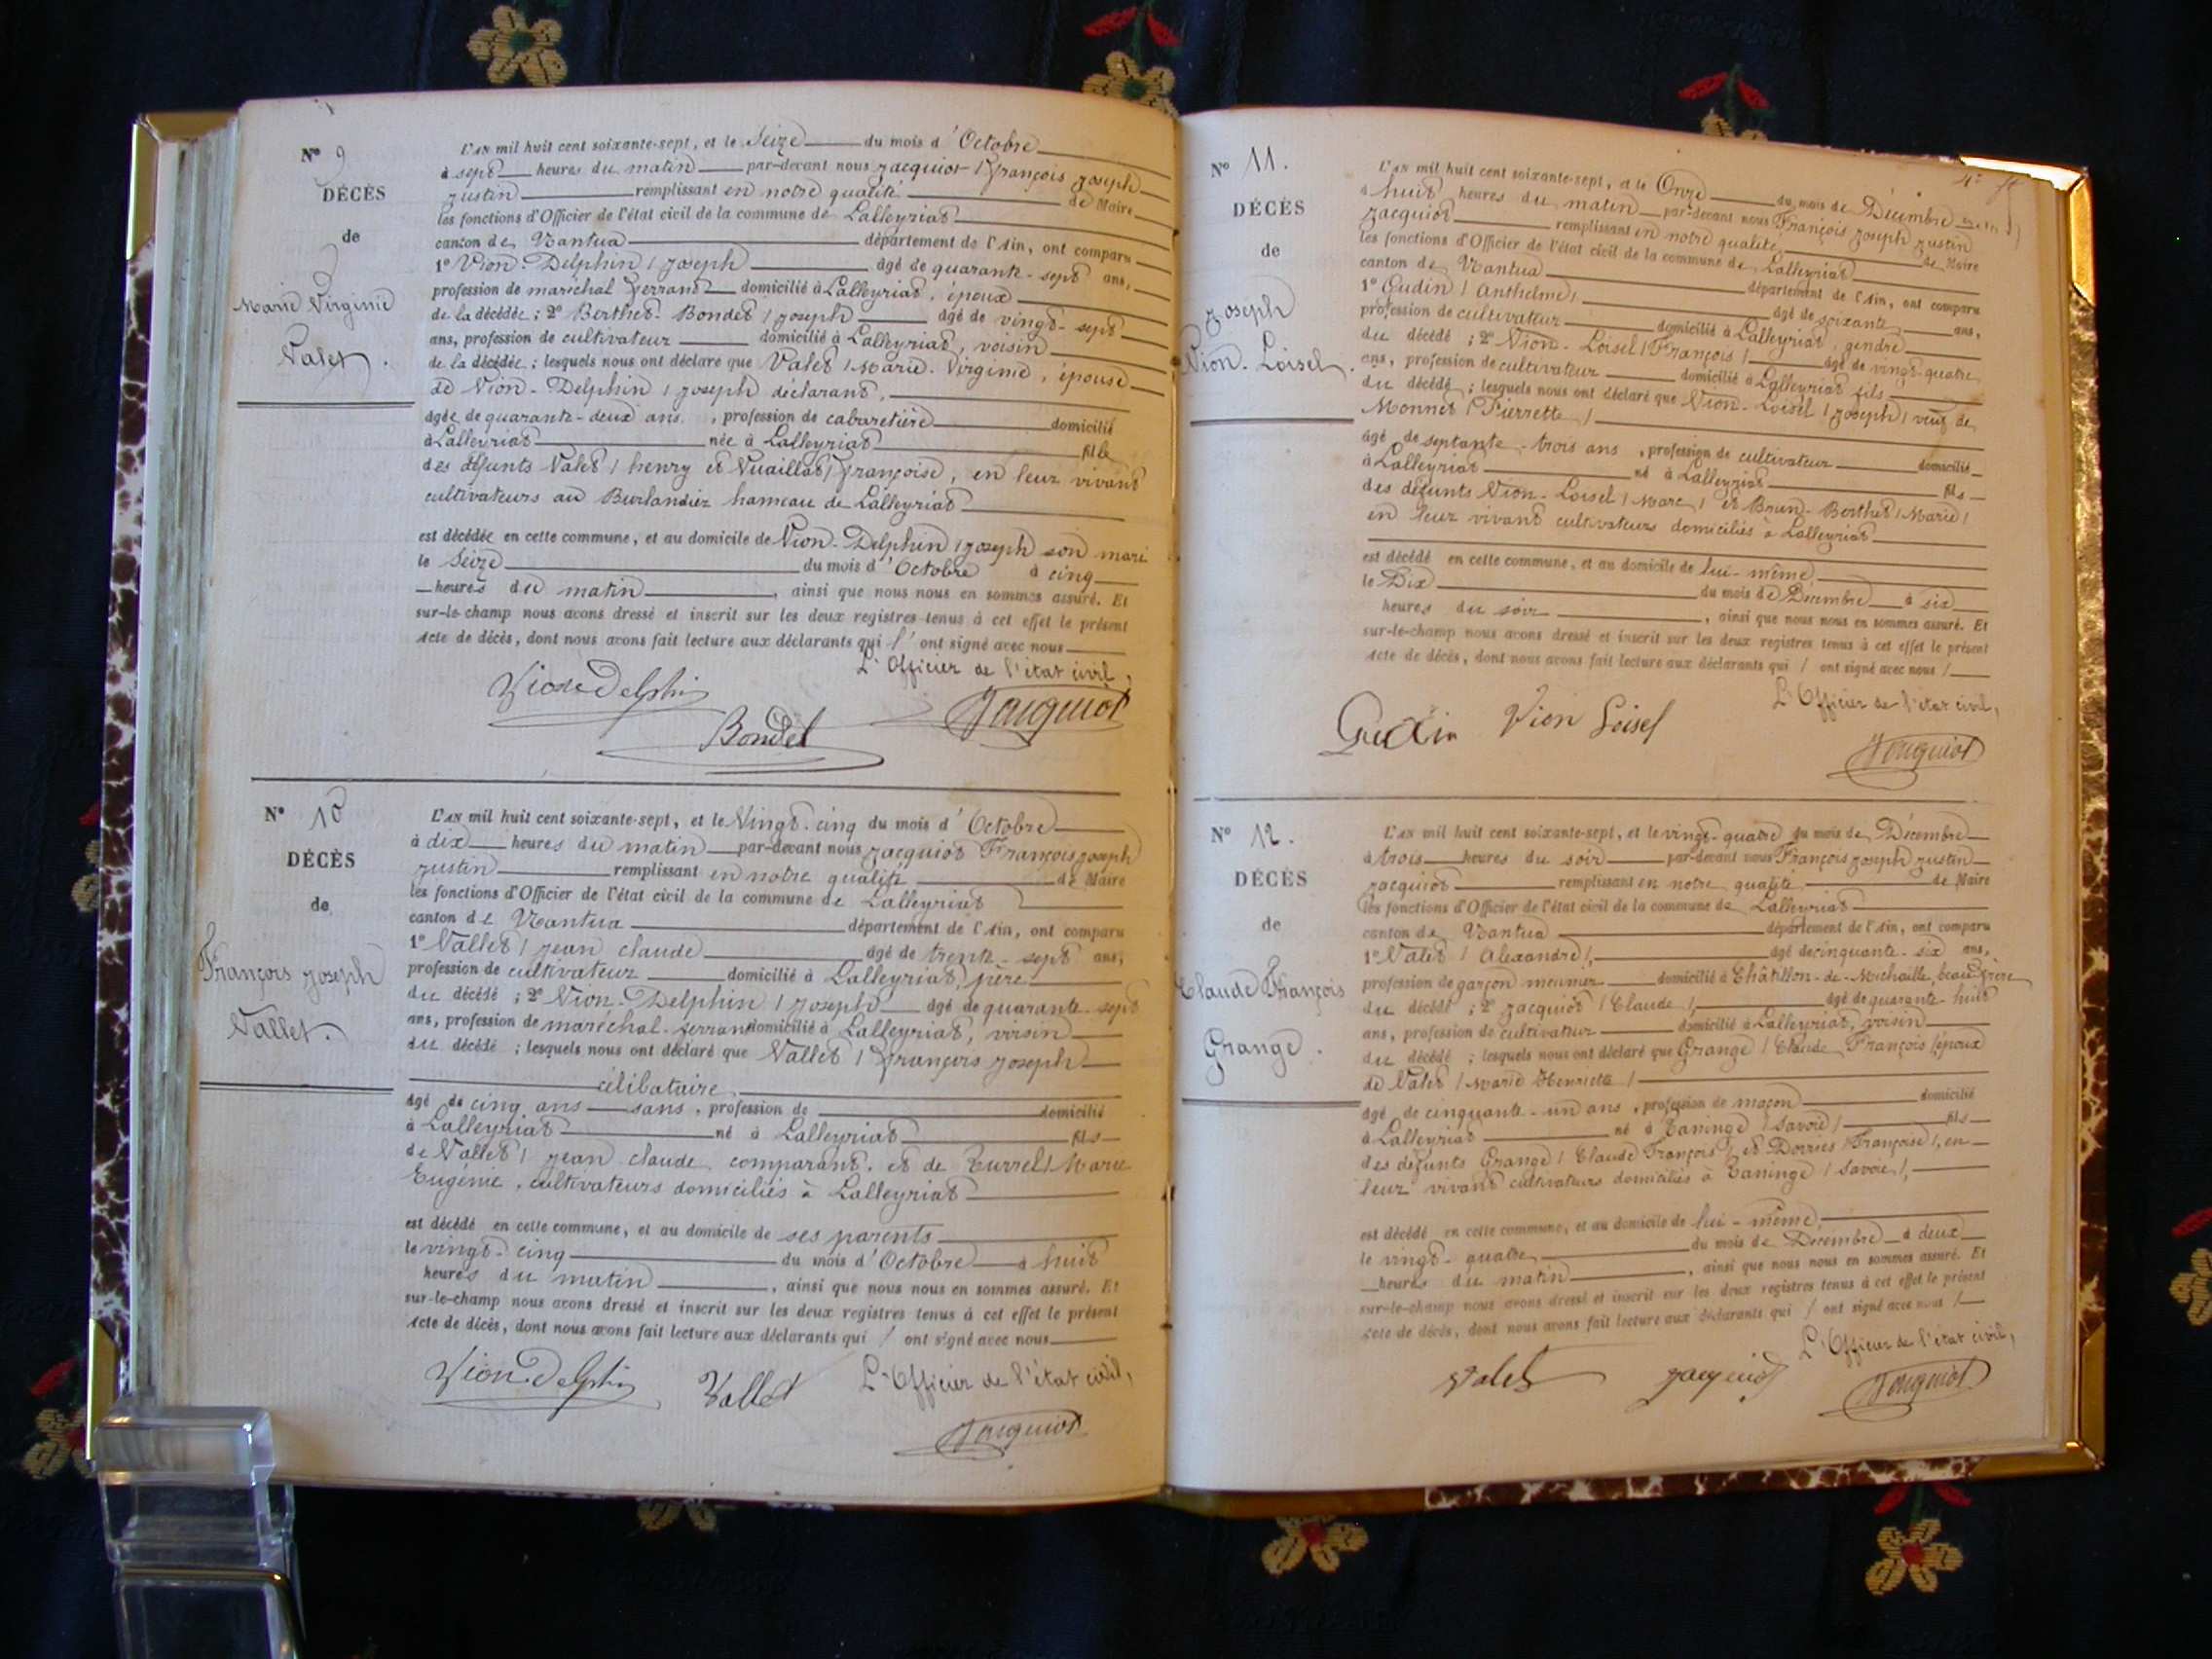 N° 9
DÉCÈS
de
Marie Virginie
Valet.
L'AN mil huit cent soixante-sept, et le Seize du mois d'Octobre
à sept heures du matin par-devant nous Jacquiot (François Joseph
Justin remplissant en notre qualité de Maire
les fonctions d'Officier de l'état civil de la commune de Lalleyriat
canton de Nantua département de l'Ain, ont comparu
1° Vion-Delphin (Joseph) âgé de quarante-sept ans,
profession de maréchal ferrant domicilié à Lalleyriat, époux
de la décédée; 2° Berthet-Bondet (Joseph) âgé de vingt-sept
ans, profession de cultivateur domicilié à Lalleyriat, voisin
de la décédée; lesquels nous ont déclaré que Valet (Marie-Virginie, épouse
de Vion-Delphin (Joseph déclarant,
âgée de quarante-deux ans, profession de cabaretière domicilié
à Lalleyriat née à Lalleyriat fille
des défunts Valet (henry et Vuaillat (Françoise, en leur vivant
cultivateurs au Burlandier hameau de Lalleyriat
est décédée en cette commune, et au domicile de Vion-Delphin (Joseph son mari
le Seize du mois d'Octobre à cinq
heures du matin, ainsi que nous nous en sommes assuré. Et
sur-le-champ nous avons dressé et inscrit sur les deux registres tenus à cet effet le présent
acte de décès, dont nous avons fait lecture aux déclarants qui l'ont signé avec nous
L'Officier de l'état civil,
Vion Delphin
Bondet
Jacquiot
N° 10
DÉCÈS
de
François Joseph
Vallet.
L'AN mil huit cent soixante-sept, et le Vingt-cinq du mois d'Octobre
à dix heures du matin par-devant nous Jacquiot François Joseph
Justin remplissant en notre qualité de Maire
les fonctions d'Officier de l'état civil de la commune de Lalleyriat
canton de Nantua département de l'Ain, ont comparu
1° Vallet (Jean Claude âgé de trente-sept ans,
profession de cultivateur domicilié à Lalleyriat, père
du décédé; 2° Vion-Delphin (Joseph) âgé de quarante-sept
ans, profession de maréchal-ferrant domicilié à Lalleyriat, voisin
du décédé; lesquels nous ont déclaré que Vallet (François Joseph
célibataire
âgé de cinq ans sans, profession de domicilié
à Lalleyriat né à Lalleyriat fils
de Vallet (Jean Claude comparant. et de Turrel (Marie
Eugénie, cultivateurs domiciliés à Lalleyriat
est décédé en cette commune, et au domicile de ses parents
le vingt-cinq du mois d'Octobre à huit
heures du matin, ainsi que nous nous en sommes assuré. Et
sur-le-champ nous avons dressé et inscrit sur les deux registres tenus à cet effet le présent
acte de décès, dont nous avons fait lecture aux déclarants qui / ont signé avec nous
Vion-Delphin Vallet L'Officier de l'état civil,
Jacquiot
N° 11.
DÉCÈS
de
Joseph
Vion-Loisel.
L'AN mil huit cent soixante-sept, et le Onze du mois de Décembre
à huit heures du matin par-devant nous François Joseph Justin
Jacquiot remplissant en notre qualité de Maire
les fonctions d'Officier de l'état civil de la commune de Lalleyriat
canton de Nantua département de l'Ain, ont comparu
1° Gudin (Anthelme) âgé de soixante ans,
profession de cultivateur domicilié à Lalleyriat, gendre
du décédé; 2° Vion-Loisel (François) âgé de vingt-quatre
ans, profession de cultivateur domicilié à Lalleyriat fils
du décédé; lesquels nous ont déclaré que Vion-Loisel (Joseph) veuf de
Monnet (Pierrette)
âgé de septante-trois ans, profession de cultivateur domicilié
à Lalleyriat né à Lalleyriat fils
des défunts Vion-Loisel (Marc) et Brun-Berthet (Marie)
en leur vivant cultivateurs domiciliés à Lalleyriat
est décédé en cette commune, et au domicile de lui-même,
le Dix du mois de Décembre à six
heures du soir, ainsi que nous nous en sommes assuré. Et
sur-le-champ nous avons dressé et inscrit sur les deux registres tenus à cet effet le présent
acte de décès, dont nous avons fait lecture aux déclarants qui / ont signé avec nous /
L'Officier de l'état civil,
Gudin Vion Loisel
Jacquiot
N° 12.
DÉCÈS
de
Claude François
Grange.
L'AN mil huit cent soixante-sept, et le vingt-quatre du mois de Décembre
à trois heures du soir par-devant nous François Joseph Justin
Jacquiot remplissant en notre qualité de Maire
les fonctions d'Officier de l'état civil de la commune de Lalleyriat
canton de Nantua département de l'Ain, ont comparu
1° Valet (Alexandre), âgé de cinquante-six ans,
profession de garçon meunier domicilié à Châtillon-de-Michaille, beau-frère
du décédé; 2° Jacquiot (Claude), âgé de quarante-huit
ans, profession de cultivateur domicilié à Lalleyriat, voisin
du décédé; lesquels nous ont déclaré que Grange (Claude François) époux
de Valet (Marie Henriette)
âgé de cinquante-un ans, profession de maçon domicilié
à Lalleyriat né à Taninge (Savoie) fils
des défunts Grange (Claude François) et Dorries (Françoise), en
leur vivant cultivateurs domiciliés à Taninge (Savoie),
est décédé en cette commune, et au domicile de lui-même,
le vingt-quatre du mois de Décembre à deux
heures du matin, ainsi que nous nous en sommes assuré. Et
sur-le-champ nous avons dressé et inscrit sur les deux registres tenus à cet effet le présent
acte de décès, dont nous avons fait lecture aux déclarants qui / ont signé avec nous /
L'Officier de l'état civil,
Valet Jacquiot Jacquiot